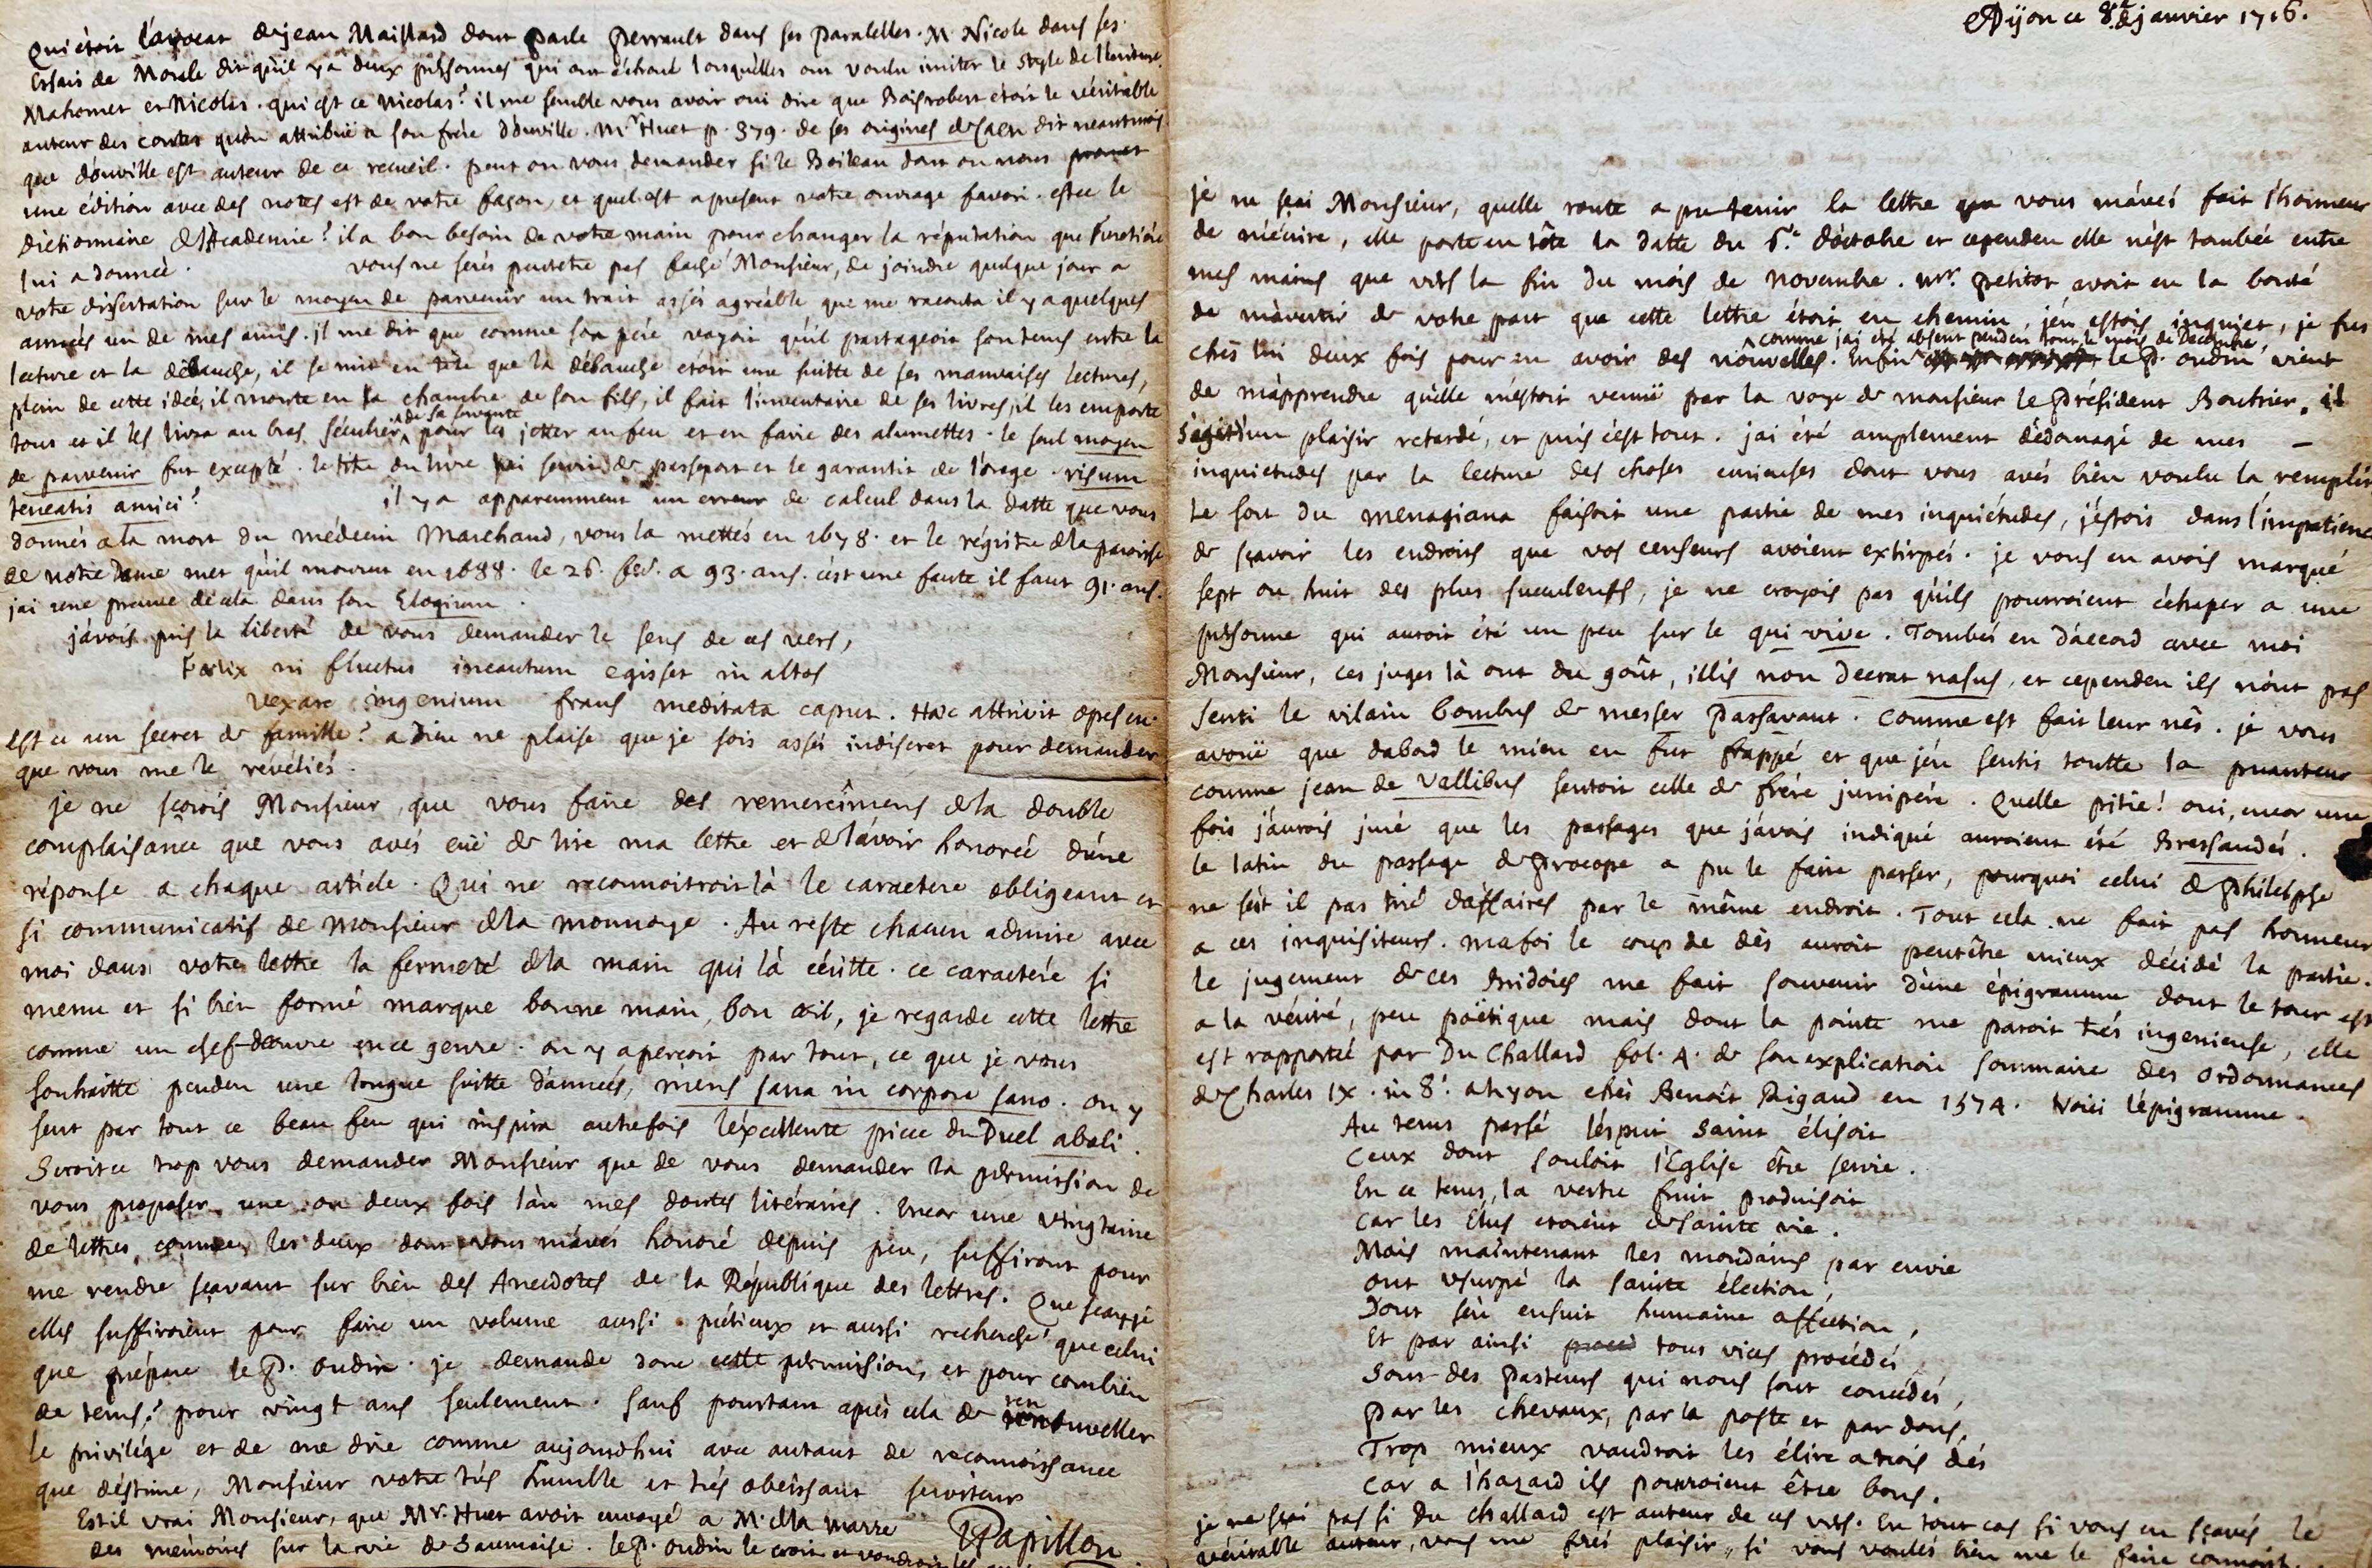 Qui étoit l'avocat de jean Maillard dont parle Perrault dans ses paralelles. M. Nicole dans ses
Essais de Morale dit qu'il y a deux persones qui ont échoué lorsqu'elles ont voulu imiter le style de l'ecriture.
Mahomet et Nicolas. qui est ce Nicolas? il me semble vous avoir oui dire que Boisrobert étoit le véritable
auteur des contes qu'on attribuë a son frére d'ouville. Mr Huet p. 379. de ses origines de Caen dit neantmois
que d'ouville est auteur de ce recueil. peut on vous demander si le Boileau dont on nous promet
une édition avec des notes est de votre façon, et quel est apresent votre ouvrage favori. est ce le
dictionnaire de l'Academie? il a bon besoin de votre main pour changer la réputation que Furetiére
lui a donnée. vous ne serés peutetre pas faché Monsieur, de joindre quelque jour a
votre dissertation sur le moyen de parvenir un trait assés agréable que me raconta il y a quelques
années un de mes amis. il me dit que comme son pére voyoit qu'il partageoit son tems entre la
lecture et la débauche, il se mit en tête que la débauche étoit une suitte de ses mauvaises lectures,
plein de cette idée, il monte en la chambre de son fils, il fait l'inventaire de ses livres, il les emporte
tous et il les livra au bras séculier de sa servante pour les jetter au feu et en faire des alumettes. le seul moyen
de parvenir fut excepté. le titre du livre lui servit de passeport et le garantit de l'orage. risum
teneatis amici? il y a apparemment un erreur de calcul dans la datte que vous
donnés a la mort du médecin Marchand, vous la mettés en 1678. et le régistre de la paroisse
de notre Dame met qu'il mourut en 1688. le 26. fev. a 93. ans. c'est une faute il faut 91. ans.
jai une preuve de cela dans son Elogium.
j'avois pris la liberté de vous demander le sens de ces vers,
Foelix ni fluctus incautum egisset in altos
Vexare ingenium fraus meditata caput. Hæc attrivit opes
est ce un secret de famille? a Dieu ne plaise que je sois assés indiscret pour demander
que vous me le révéliés.
je ne sçarois Monsieur, que vous faire des remercîmens de la double
complaisance que vous avés euë de lire ma lettre et de l'avoir honorée d'une
réponse a chaque article. Qui ne reconnoitroit là le caractere obligeant et
si communicatif de Monsieur de la monnoye. Au reste chacun admire avec
moi dans votre lettre la fermeté de la main qui l'a écritte. ce caractére si
menu et si bien formé marque bonne main, bon œil, je regarde cette lettre
comme un chef-dœuvre en ce genre. on y apercoit par tout, ce que je vous
souhaitte penden une longue suitte d'années, mens sana in corpore sano. on y
sent par tout ce beau feu qui inspira autrefois l'éxcellente piece du Duel aboli.
Seroit ce trop vous demander Monsieur que de vous demander la permission de
vous proposer une ou deux fois l'an mes doutes litéraires. Encor une vingtaine
de lettres comme les deux dont vous m'avés honoré depuis peu, suffiront pour
me rendre sçavant sur bien des Anecdotes de la République des lettres. Que sçay je
elles suffiroient pour faire un volume aussi prétieux et aussi recherché que celui
que prépare le P. oudin. je demande donc cette permission, et pour combien
de tems? pour vingt ans seulement. sauf pourtant aprés cela de renouveller
le privilége et de me dire comme aujourdhui avec autant de reconnoissance
que déstime, Monsieur votre trés humble et trés obeïssant serviteur
Papillon
Est il vrai Monsieur, que Mr. Huet avoit envoyé a M. de la Marre
des mémoires sur la vie de Saumaise. le P. oudin le croit et voudroit les
A Dijon ce 8.e de janvier 1716.
je ne sçai Monsieur, quelle route a pu tenir la lettre que vous m'avés fait l'honneur
de m'écrire, elle porte en tête la datte du 6.e d'octobre et cependen elle n'est tombée entre
mes mains que vers la fin du mois de Novembre. Mr. petitot avoit eu la bonté
de m'avertir de votre part que cette lettre étoit en chemin, j'en estois inquiet, je fus
chés lui deux fois pour en avoir des nouvelles. comme jai été absent penden tout le mois de Decembre, Enfin le P. oudin vient
de m'apprendre qu'elle m'estoit venuë par la voye de monsieur le Président Bouhier. il
s'agit d'un plaisir retardé, et puis c'est tout. jai été amplement dédomagé de mes
inquietudes par la lecture des choses curieuses dont vous avés bien voulu la remplir
Le sort du menagiana faisoit une partie de mes inquiétudes, j'éstois dans l'impatience
de sçavoir les endroits que vos censeurs avoient extirpés. je vous en avois marqué
sept ou huit des plus succulents, je ne croyois pas qu'ils pourroient échaper a une
persone qui auroit été un peu sur le qui vive. Tombés en d'accord avec moi
Monsieur, ces juges là ont du goût, illis non deerat nasus, et cependen ils n'ont pas
senti le vilain bombus de messer Passavant. comme est fait leur nés. je vous
avouë que dabord le mien en fut frappé et que j'en sentis toutte la puanteur
comme jean de Vallibus sentoit celle de frére junipére. Quelle pitié! oui, encor une
fois j'aurois juré que les passages que j'avois indiqué auroient été Bressandés.
le latin du passage de Procope a pu le faire passer, pourquoi celui de Philelphe
ne s'est il pas tiré d'affaires par le même endroit. Tout cela ne fait pas honneur
a ces inquisiteurs. mafoi le coup de dés auroit peutêtre mieux décidé la partie.
le jugement de ces Bridoies me fait souvenir d'une épigramme dont le tour est
a la vérité, peu poëtique mais dont la pointe me paroit trés ingenieuse, elle
est rapportée par Du Challard fol. 4. de son explication sommaire des ordonnances
de Charles IX. in 8.° a Lyon chés Benoît Rigaud en 1574. Voici l'épigramme.
Au tems passé l'ésprit saint élisoit
Ceux dont souloit l'Eglise être servie.
En ce tems, la vertu fruit produisoit
car les Elus etoient de sainte vie.
Mais maintenant les mondains par envie
ont usurpé la sainte élection,
Dont s'en ensuit humaine affection,
Et par ainsi tous vices procédés
Sont des Pasteurs qui nous sont concédés,
Par les chevaux, par la poste et par dons,
Trop mieux vaudroit les élire a trois dés
Car a l'hazard ils pourroient être bons.
je ne sçai pas si Du challard est auteur de ces vers. En tout cas si vous en sçavés le
véritable auteur, vous me ferés plaisir, si vous voulés bien me le faire connoit